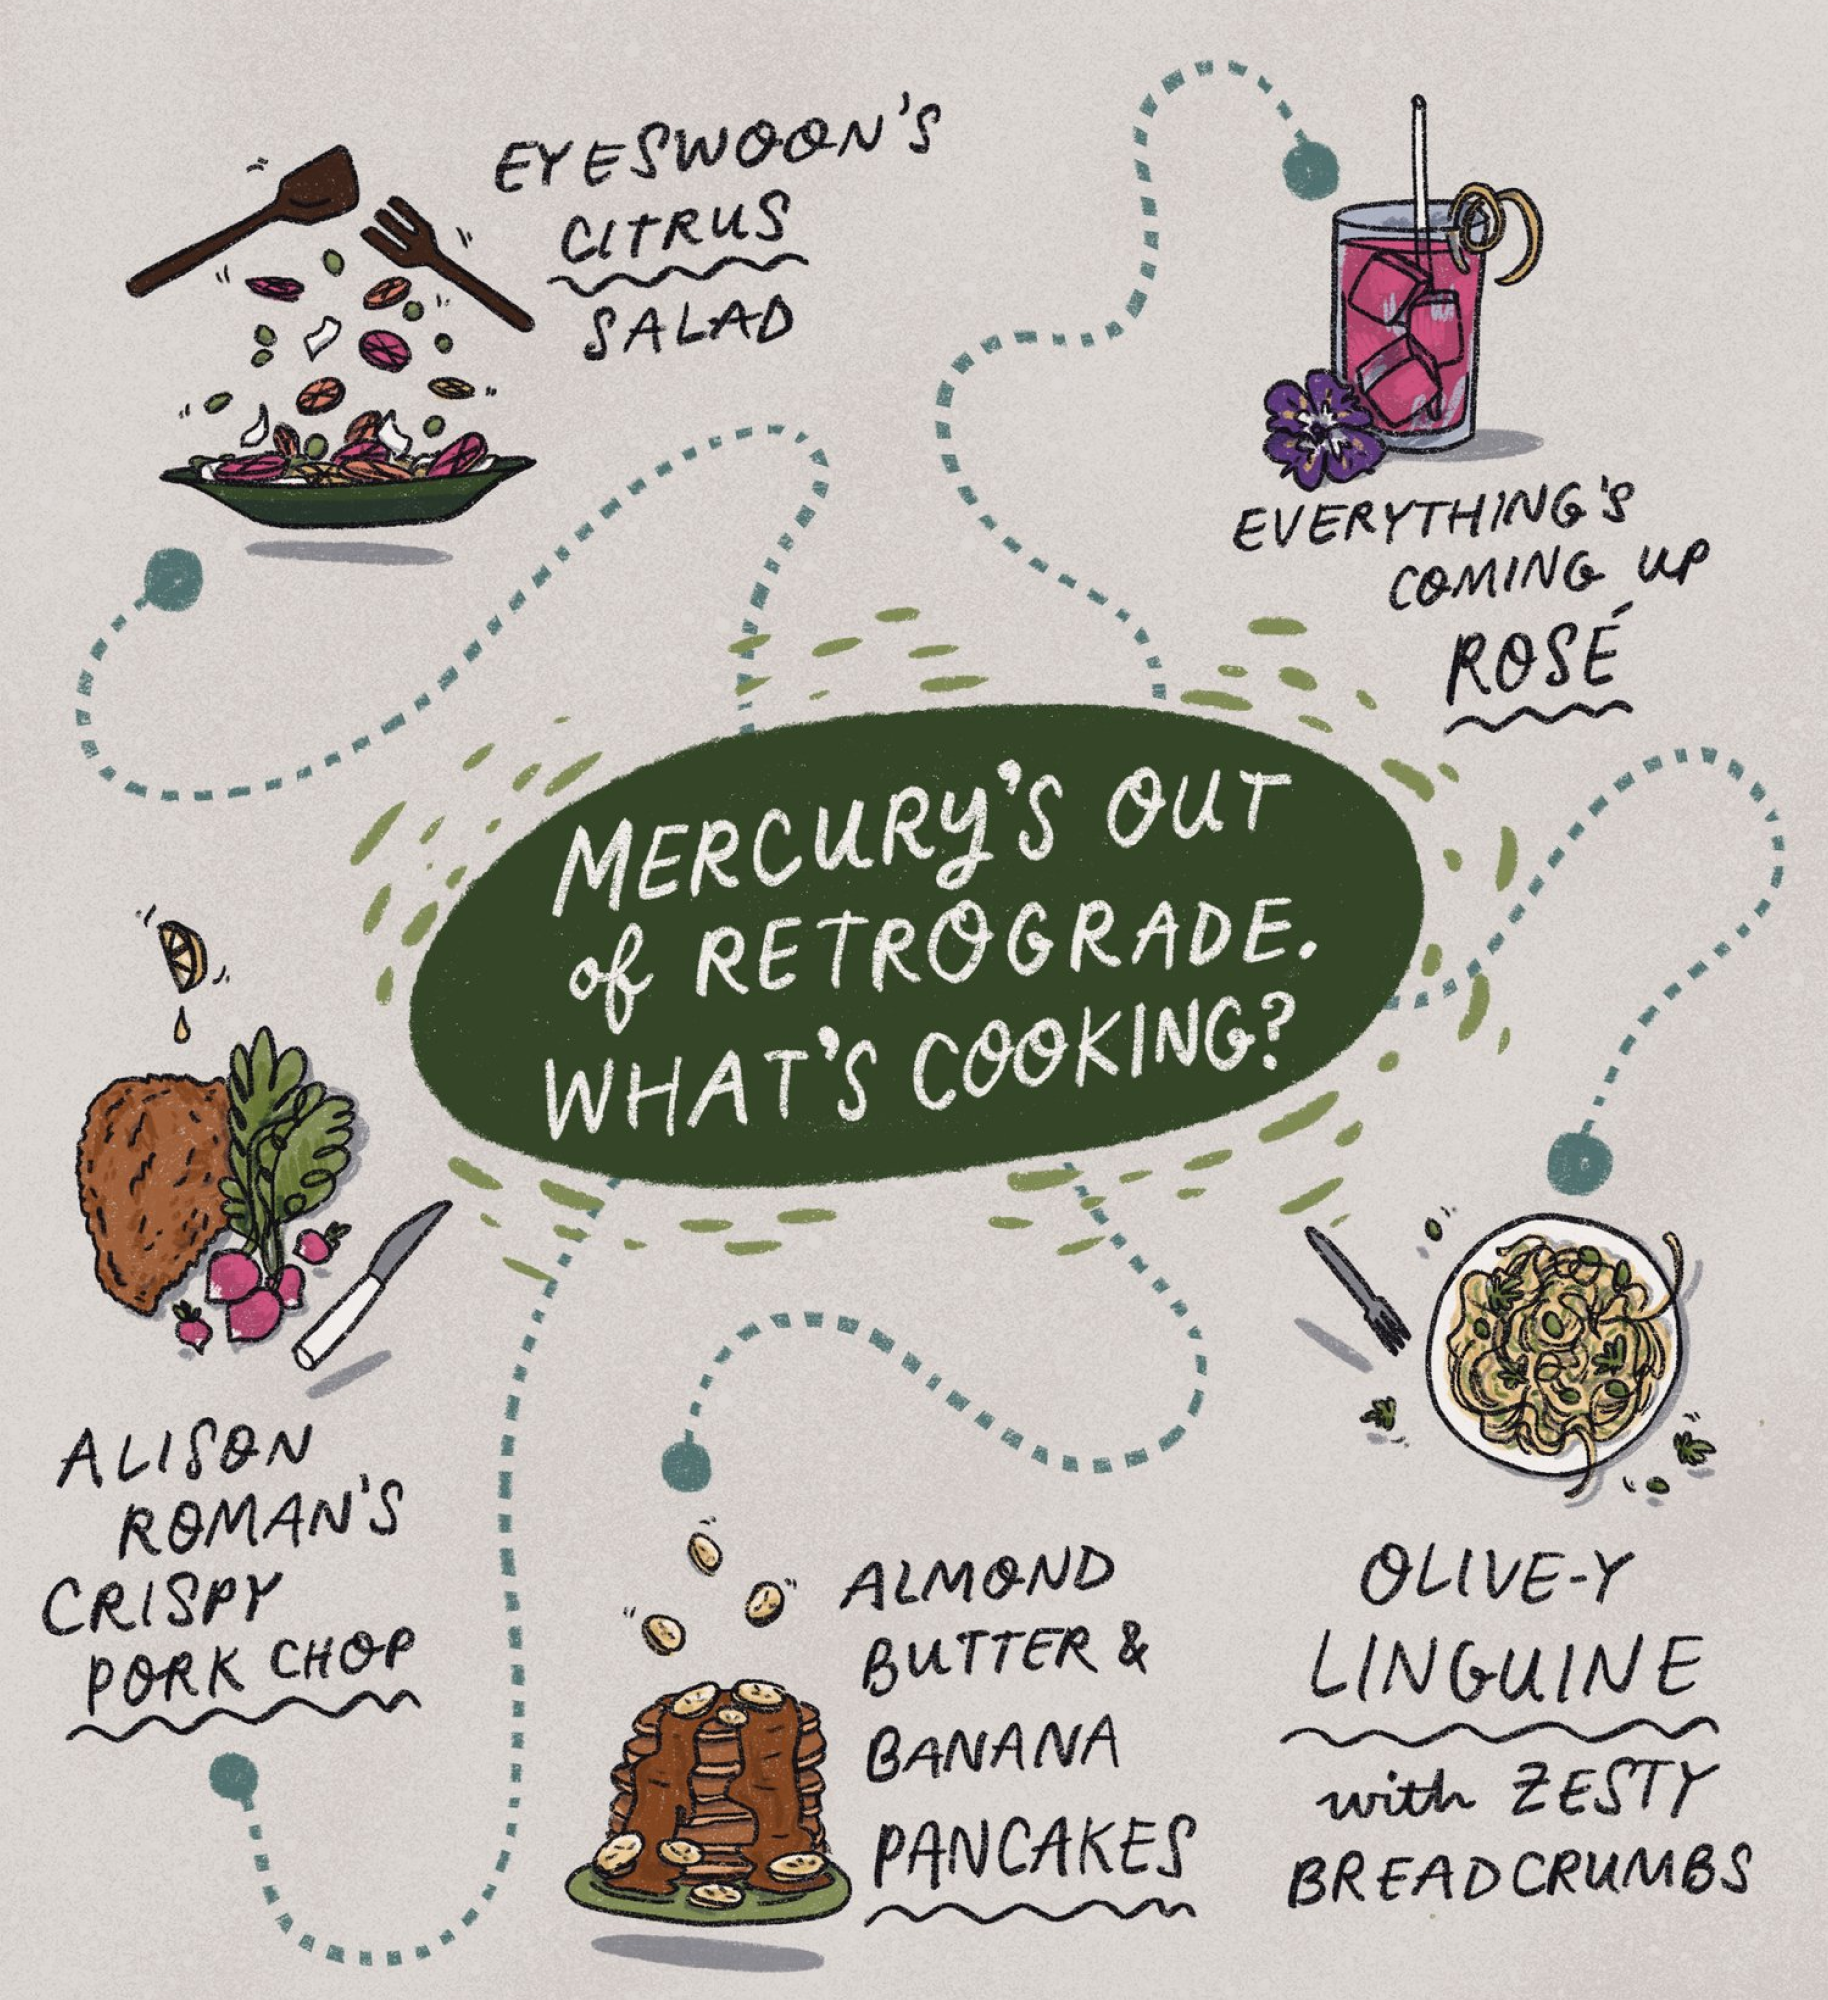 EYESWOON'S
CITRUS
SALAD
EVERYTHING'S
COMING UP
ROSÉ
MERCURY'S OUT
of RETROGRADE.
WHAT'S COOKING?
ALISON
ROMAN'S
CRISPY
PORK CHOP
ALMOND
BUTTER &
BANANA
PANCAKES
OLIVE-Y
LINGUINE
with ZESTY
BREADCRUMBS